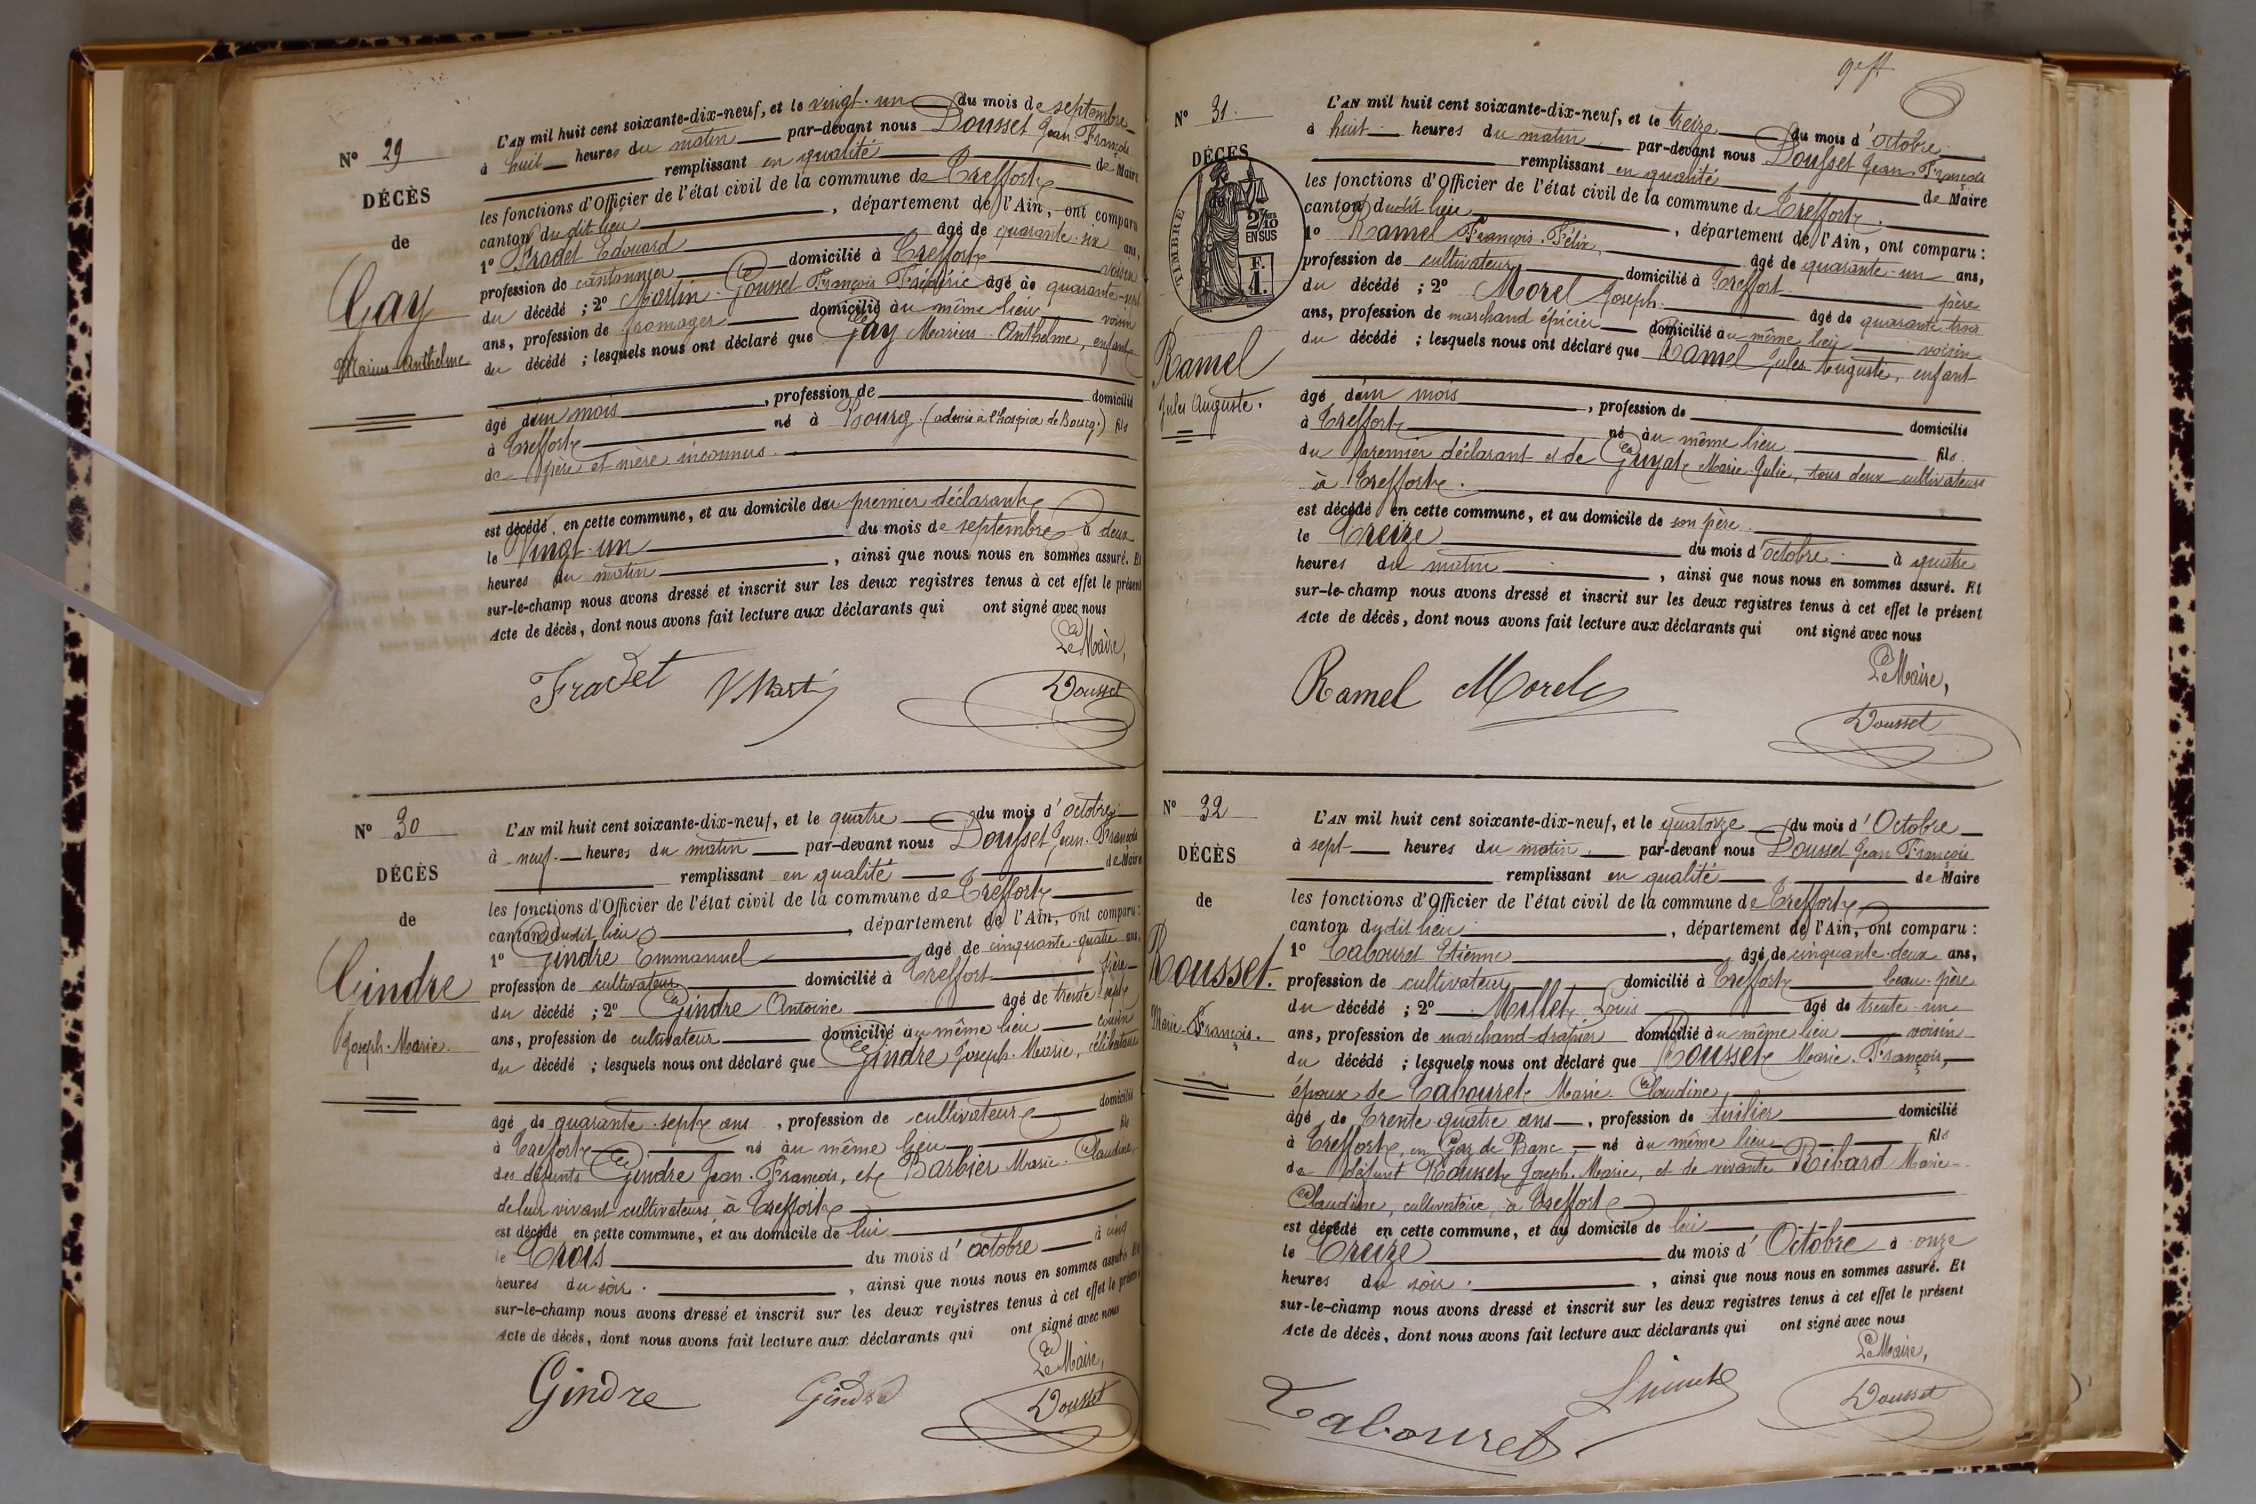 N° 29
DÉCÈS
de
Gay
Marius Anthelme
L'AN mil huit cent soixante-dix-neuf, et le vingt-un du mois de septembre
à huit heures du matin par-devant nous Dousset Jean François
remplissant en qualité de Maire
les fonctions d'Officier de l'état civil de la commune de Treffort
canton dudit lieu, département de l'Ain, ont comparu
1° Fradet Edouard âgé de quarante-six ans,
profession de cantonnier domicilié à Treffort voisin
du décédé ; 2° Martin Gousset François Frédéric âgé de quarante-sept
ans, profession de fromager domicilié au même lieu voisin
du décédé ; lesquels nous ont déclaré que Gay Marius Anthelme, enfant
âgé d'un mois, profession de domicilié
à Treffort né à Bourg (admis à l'hospice de Bourg.) fils
de père et mère inconnus.
est décédé en cette commune, et au domicile du premier déclarant
le Vingt-un du mois de septembre à deux
heures du matin, ainsi que nous nous en sommes assuré. Et
sur-le-champ nous avons dressé et inscrit sur les deux registres tenus à cet effet le présent
Acte de décès, dont nous avons fait lecture aux déclarants qui ont signé avec nous
Le Maire,
Fradet Dousset
N° 30
DÉCÈS
de
Gindre
Joseph-Marie.
L'AN mil huit cent soixante-dix-neuf, et le quatre du mois d'octobre
à neuf heures du matin par-devant nous Dousset Jean-François
remplissant en qualité de Maire
les fonctions d'Officier de l'état civil de la commune de Treffort
canton dudit lieu, département de l'Ain, ont comparu :
1° Gindre Emmanuel âgé de cinquante-quatre ans,
profession de cultivateur domicilié à Treffort frère
du décédé ; 2° Gindre Antoine âgé de trente-sept
ans, profession de cultivateur domicilié au même lieu cousin
du décédé ; lesquels nous ont déclaré que Gindre Joseph-Marie, célibataire
âgé de quarante-sept ans, profession de cultivateur domicilié
à Treffort né au même lieu fils
des défunts Gindre Jean-François, et Barbier Marie-Claudine
de leur vivant cultivateurs à Treffort
est décédé en cette commune, et au domicile de lui
le Trois du mois d'octobre à cinq
heures du soir., ainsi que nous nous en sommes assuré. Et
sur-le-champ nous avons dressé et inscrit sur les deux registres tenus à cet effet le présent
Acte de décès, dont nous avons fait lecture aux déclarants qui ont signé avec nous
Le Maire,
Gindre Gindre Dousset
N° 31.
DÉCES
TIMBRE
2/10
EN SUS
F.
1.
Ramel
Jules Auguste.
L'AN mil huit cent soixante-dix-neuf, et le treize du mois d'octobre
à huit heures du matin par-devant nous Dousset Jean François
remplissant en qualité de Maire
les fonctions d'Officier de l'état civil de la commune de Treffort.
canton dudit lieu, département de l'Ain, ont comparu :
1° Ramel François-Félix, âgé de quarante-un ans,
profession de cultivateur domicilié à Treffort père
du décédé ; 2° Morel Joseph. âgé de quarante-trois
ans, profession de marchand épicier domicilié au même lieu voisin
du décédé ; lesquels nous ont déclaré que Ramel Jules Auguste, enfant
âgé d'un mois, profession de domicilié
à Treffort né au même lieu fils
du premier déclarant et de Guyat Marie-Julie, tous deux cultivateurs
à Treffort.
est décédé en cette commune, et au domicile de son père.
le Treize du mois d'octobre à quatre
heures du matin, ainsi que nous nous en sommes assuré. Et
sur-le-champ nous avons dressé et inscrit sur les deux registres tenus à cet effet le présent
Acte de décès, dont nous avons fait lecture aux déclarants qui ont signé avec nous
Le Maire,
Ramel Morel Dousset
N° 32
DÉCÈS
de
Rousset.
Marie-François.
L'AN mil huit cent soixante-dix-neuf, et le quatorze du mois d'Octobre
à sept heures du matin par-devant nous Dousset Jean François
remplissant en qualité de Maire
les fonctions d'Officier de l'état civil de la commune de Treffort
canton dudit lieu, département de l'Ain, ont comparu :
1° Tabouret Etienne âgé de cinquante-deux ans,
profession de cultivateur domicilié à Treffort beau-père
du décédé ; 2° Millet Louis âgé de trente-un
ans, profession de marchand-drapier domicilié au même lieu voisin
du décédé ; lesquels nous ont déclaré que Rousset Marie-François,
époux de Tabouret Marie Claudine
âgé de Trente quatre ans, profession de tuilier domicilié
à Treffort, en né au même lieu fils
de défunt Rousset Joseph-Marie, et de vivante Ribard Marie-
Claudine, cultivatrice, à Treffort
est décédé en cette commune, et au domicile de lui
le Treize du mois d'Octobre à onze
heures du soir., ainsi que nous nous en sommes assuré. Et
sur-le-champ nous avons dressé et inscrit sur les deux registres tenus à cet effet le présent
Acte de décès, dont nous avons fait lecture aux déclarants qui ont signé avec nous
Le Maire,
Tabouret Dousset